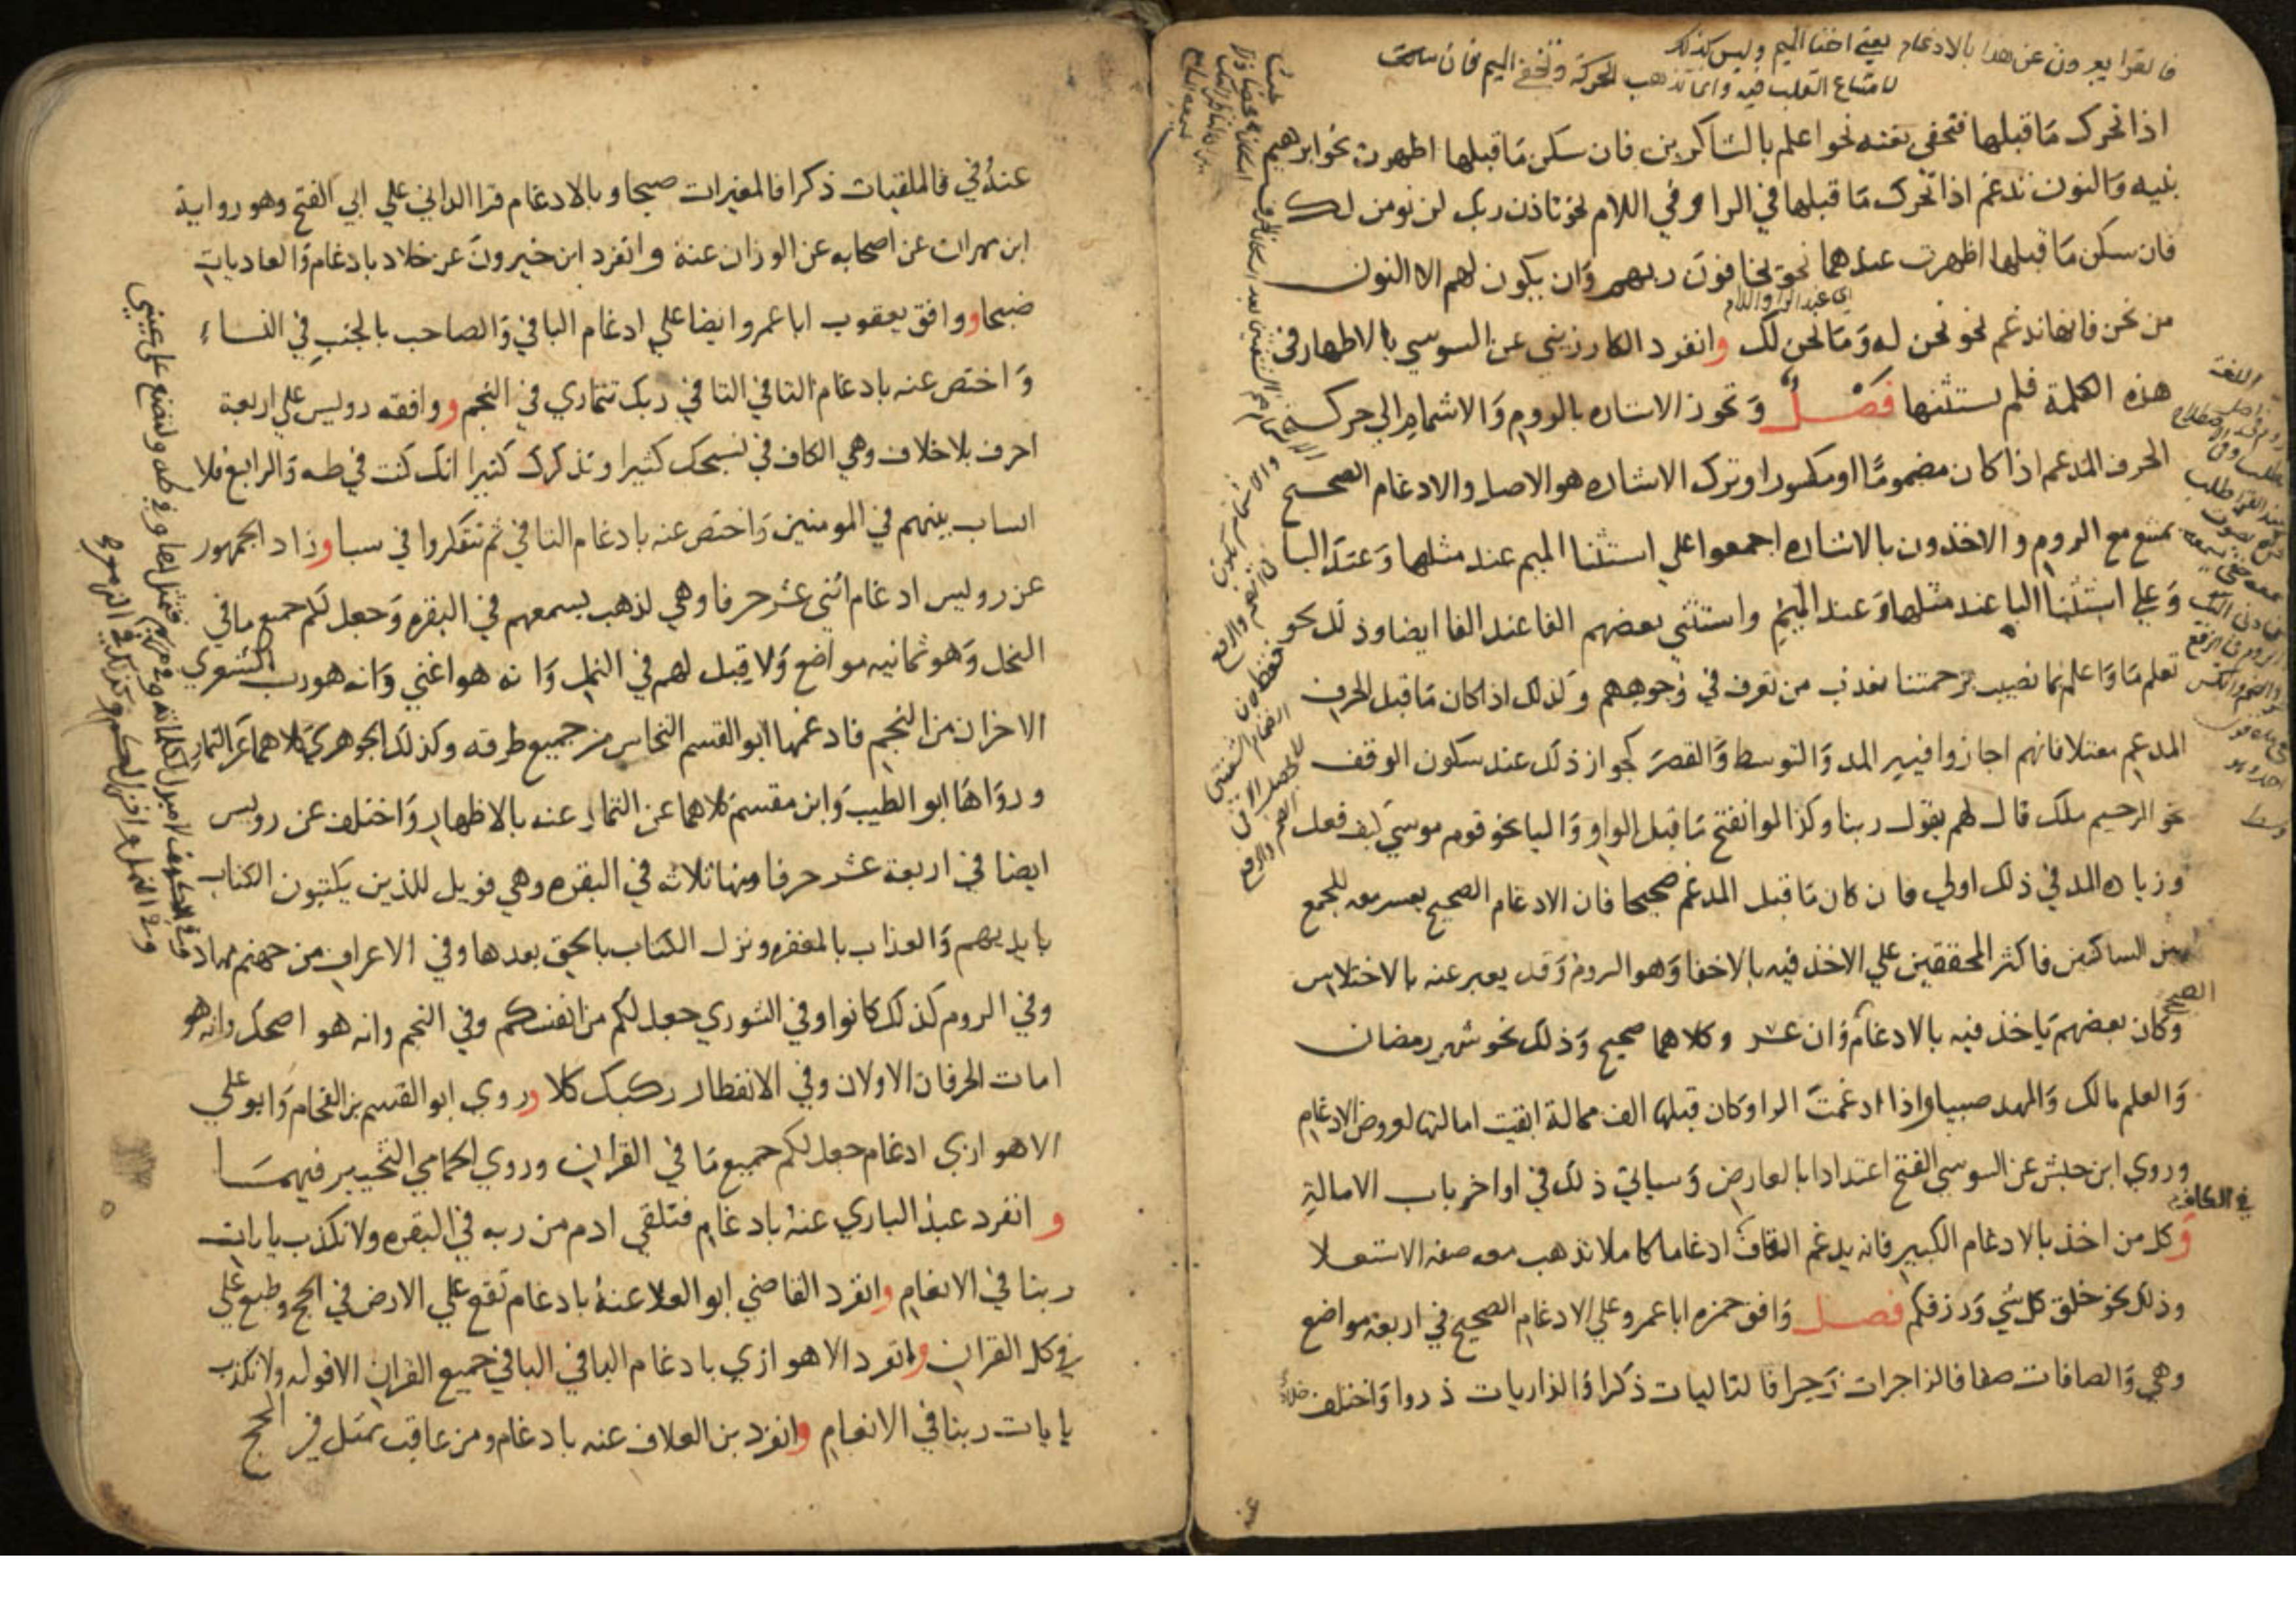 فالقرا يعبرون عن هذا بالادغام يعني اخفا الميم وليس كذلك
لامتناع القلب فيه وانما تذهب الحركة وتخفى الميم فان سكنت
اذا تحرك ما قبلها فتخفى بغنه نحو اعلم بالشاكرين فان سكن ما قبلها اظهرت نحو ابرهيم
بنيه والنون تدغم اذا تحرك ما قبلها في الرا وفي اللام نحو تاذن ربك لن نومن لك
فان سكن ما قبلها اظهرت عندهما نحو يخافون ربهم وان يكون لهم الا النون
اي عند الرا واللام
من نحن فانها تدغم نحو نحن له وما نحن لك وانفرد الكارزيني عن السوسي بالاظهار في
هذه الكلمة فلم يستثنها فصل وتجوز الاشاره بالروم والاشمام الي حركة
الحرف المدغم اذا كان مضموما او مكسورا وترك الاشاره هو الاصل والادغام الصحيح
يمتنع مع الروم والاخذون بالاشاره اجمعوا علي استثنا الميم عند مثلها وعند البا
وعلي استثنا البا عند مثلها وعند الميم واستثني بعضهم الفا عند الفا ايضا وذلك نحو
تعلم ما واعلم بما نصيب برحمتنا يعذب من تعرف في وجوههم وكذلك اذا كان ما قبل الحرف
المدغم معتلا فانهم اجازوا فيه المد والتوسط والقصر كجواز ذلك عند سكون الوقف
نحو الرحيم ملك قال لهم يقول ربنا وكذا لو انفتح ما قبل الواو واليا نحو قوم موسي كيف فعل
وزياده المد في ذلك اولي فان كان ما قبل المدغم صحيحا فان الادغام الصحيح يعسر معه للجمع
بين الساكنين فاكثر المحققين علي الاخذ فيه بالاخفا وهو الروم وقد يعبر عنه بالاختلاس
الصحيح
وكان بعضهم ياخذ فيه بالادغام وان عسر وكلاهما صحيح وذلك نحو شهر رمضان
والعلم مالك والمهد صبيا واذا ادغمت الرا وكان قبلها الف ممالة ابقيت امالتها لعروض الادغام
وروي ابن حبش عن السوسي الفتح اعتدادا بالعارض وسياتي ذلك في اواخر باب الامالة
في الكاف
وكل من اخذ بالادغام الكبير فانه يدغم القاف ادغاما كاملا تذهب معه صفه الاستعلا
وذلك نحو خلق كل شي ورزقكم فصل وافق حمزه ابا عمرو علي الادغام الصحيح في اربعة مواضع
وهي والصافات صفا فالزاجرات زجرا فالتاليات ذكرا والذاريات ذروا واختلف
خلاد
عنه
عنه في فالملقيات ذكرا فالمغيرات صبحا وبالادغام قرا الداني علي ابي الفتح وهو رواية
ابن مهران عن اصحابه عن الوزان عنه وانفرد ابن خيرون عن خلاد بادغام والعاديات
ضبحا ووافق يعقوب ابا عمرو ايضا علي ادغام البا في والصاحب بالجنب في النساء
واختص عنه بادغام التا في التا في ربك تتماري في النجم ووافقه رويس علي اربعة
احرف بلا خلاف وهي الكاف في نسبحك كثيرا ونذكرك كثيرا انك كنت في طه والرابع فلا
انساب بينهم في المومنين واختص عنه بادغام التا في ثم تتفكروا في سبا وزاد الجمهور
عن رويس ادغام اثني عشر حرفا وهي لذهب بسمعهم في البقره وجعل لكم جميع ما في
النحل وهو ثمانيه مواضع ولا قبل لهم في النمل وانه هو اغني وانه هو رب الشعري
الاخران من النجم فادغمها ابو القسم النخاس من جميع طرقه وكذلك الجوهري كلاهما عن التمار
ورواها ابو الطيب وابن مقسم كلاهما عن التمار عنه بالاظهار واختلف عن رويس
ايضا في اربعة عشر حرفا منها ثلاثه في البقره وهي فويل للذين يكتبون الكتاب
بايديهم والعذاب بالمغفره ونزل الكتاب بالحق بعدها وفي الاعراف من جهنم مهاد
وفي الروم كذلك كانوا وفي الشوري جعل لكم من انفسكم وفي النجم وانه هو اضحك وانه هو
امات الحرفان الاولان وفي الانفطار ركبك كلا وروي ابو القسم بن الفحام وابو علي
الاهوازي ادغام جعل لكم جميع ما في القران وروي الحمامي التخيير فيهما
وانفرد عبد الباري عنه بادغام فتلقي ادم من ربه في البقره ولا نكذب بايات
ربنا في الانعام وانفرد القاضي ابو العلا عنه بادغام تقع علي الارض في الحج وطبع علي
في كل القران وانفرد الاهوازي بادغام البا في البا في جميع القران الا قوله ولا نكذب
بايات ربنا في الانعام وانفرد بن العلاف عنه بادغام ومن عاقب بمثل في الحج